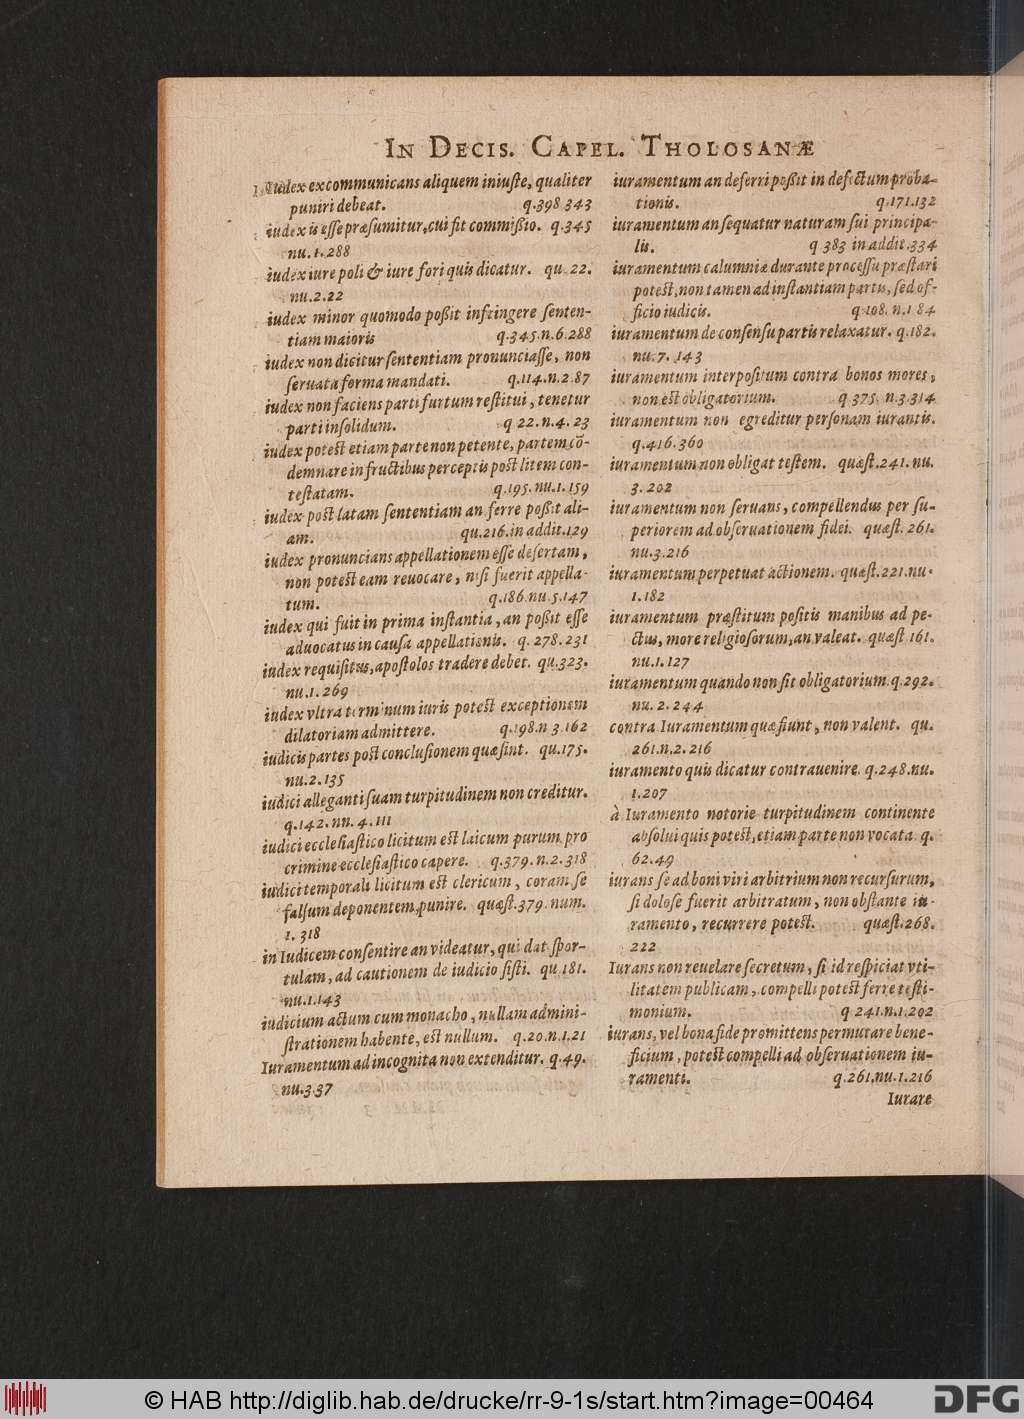 IN DECIS. CAPEL. THOLOSANÆ
Iudex excommunicans aliquem iniuſte, qualiter
puniri debeat. q.398 343
iudex is eſſe præſumitur, cui fit commiſſio. q.345
nu.1.288
iudex iure poli & iure fori quis dicatur. qu.22.
nu.2.22
iudex minor quomodo poſſit infringere ſenten-
tiam maioris q.345.n.6.288
iudex non dicitur ſententiam pronunciaſſe, non
ſeruata forma mandati. q.114.n.2.87
iudex non faciens parti furtum reſtitui, tenetur
parti inſolidum. q 22.n.4.23
iudex poteſt etiam parte non petente, partem cō-
demnare in fructibus perceptis poſt litem con-
teſtatam. q.195.nu.1.159
iudex poſt latam ſententiam an ferre poſſit ali-
am. qu.216.in addit.129
iudex pronuncians appellationem eſſe deſertam,
non poteſt eam reuocare, niſi fuerit appella-
tum. q.186.nu.5.147
iudex qui fuit in prima inſtantia, an poſſit eſſe
aduocatus in cauſa appellationis. q.278.231
iudex requiſitus, apoſtolos tradere debet. qu.323.
nu.1.269
iudex vltra terminum iuris poteſt exceptionem
dilatoriam admittere. q.198.n 3.162
iudicis partes poſt concluſionem quæ ſint. qu.175.
nu.2.135
iudici alleganti ſuam turpitudinem non creditur.
q.142.nn.4.111
iudici eccleſiaſtico licitum eſt laicum purum pro
crimine eccleſiaſtico capere. q.379.n.2.318
iudici temporali licitum eſt clericum, coram ſe
falſum deponentem, punire. quæſt.379.num.
1.318
in Iudicem conſentire an videatur, qui dat ſpor-
tulam, ad cautionem de iudicio ſiſti. qu.181.
nu.1.143
iudicium actum cum monacho, nullam admini-
ſtrationem habente, eſt nullum. q.20.n.1.21
Iuramentum ad incognita non extenditur. q.49.
nu.3.37
iuramentum an deferri poſſit in defectum proba-
tionis. q.171.132
iuramentum an ſequatur naturam ſui principa-
lis. q 383 in addit.334
iuramentum calumniæ durante proceſſu præſtari
poteſt, non tamen ad inſtantiam partis, ſed of-
ficio iudicis. q.108.n.1 84
iuramentum de conſenſu partis relaxatur. q.182.
nu.7.143
iuramentum interpoſitum contra bonos mores,
non eſt obligatorium. q.375.n.3.314
iuramentum non egreditur perſonam iurantis.
q.416.360
iuramentum non obligat teſtem. quæſt.241.nu.
3.202
iuramentum non ſeruans, compellendus per ſu-
periorem ad obſeruationem fidei. quæſt.261.
nu.3.216
iuramentum perpetuat actionem. quæſt.221.nu.
1.182
iuramentum præſtitum poſitis manibus ad pe-
ctus, more religioſorum, an valeat. quæſt 161.
nu.1.127
iuramentum quando non ſit obligatorium. q.292.
nu.2.244
contra Iuramentum quæ fiunt, non valent. qu.
261.n.2.216
iuramento quis dicatur contrauenire. q.248.nu.
1.207
à Iuramento notorie turpitudinem continente
abſolui quis poteſt, etiam parte non vocata. q.
62.49
iurans ſe ad boni viri arbitrium non recurſurum,
ſi doloſe fuerit arbitratum, non obſtante iu-
ramento, recurrere poteſt. quæſt.268.
222
Iurans non reuelare ſecretum, ſi id reſpiciat vti-
litatem publicam, compelli poteſt ferre teſti-
monium. q 241.n.1.202
iurans, vel bona fide promittens permutare bene-
ficium, poteſt compelli ad obſeruationem iu-
ramenti. q.261.nu.1.216
Iurare
© HAB http://diglib.hab.de/drucke/rr-9-1s/start.htm?image=00464
DFG